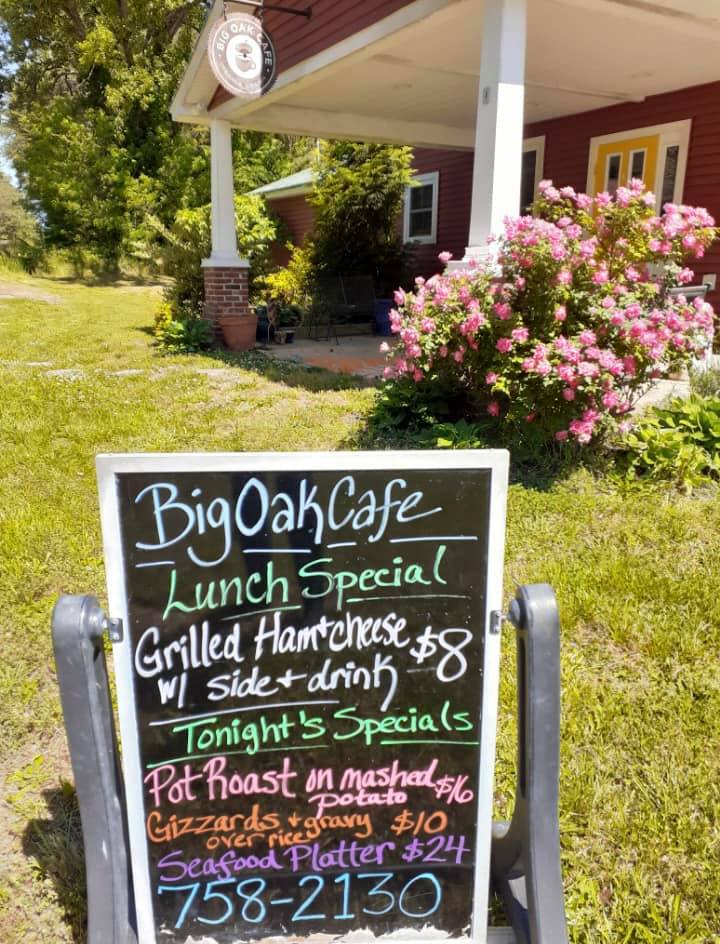 BIG OAK CAFE
Big Oak Cafe
Lunch Special
Grilled Ham + cheese $8
w/ side + drink
Tonight's Specials
Pot Roast on mashed $16
potato
Gizzards + gravy $10
over rice
Seafood Platter $24
758-2130